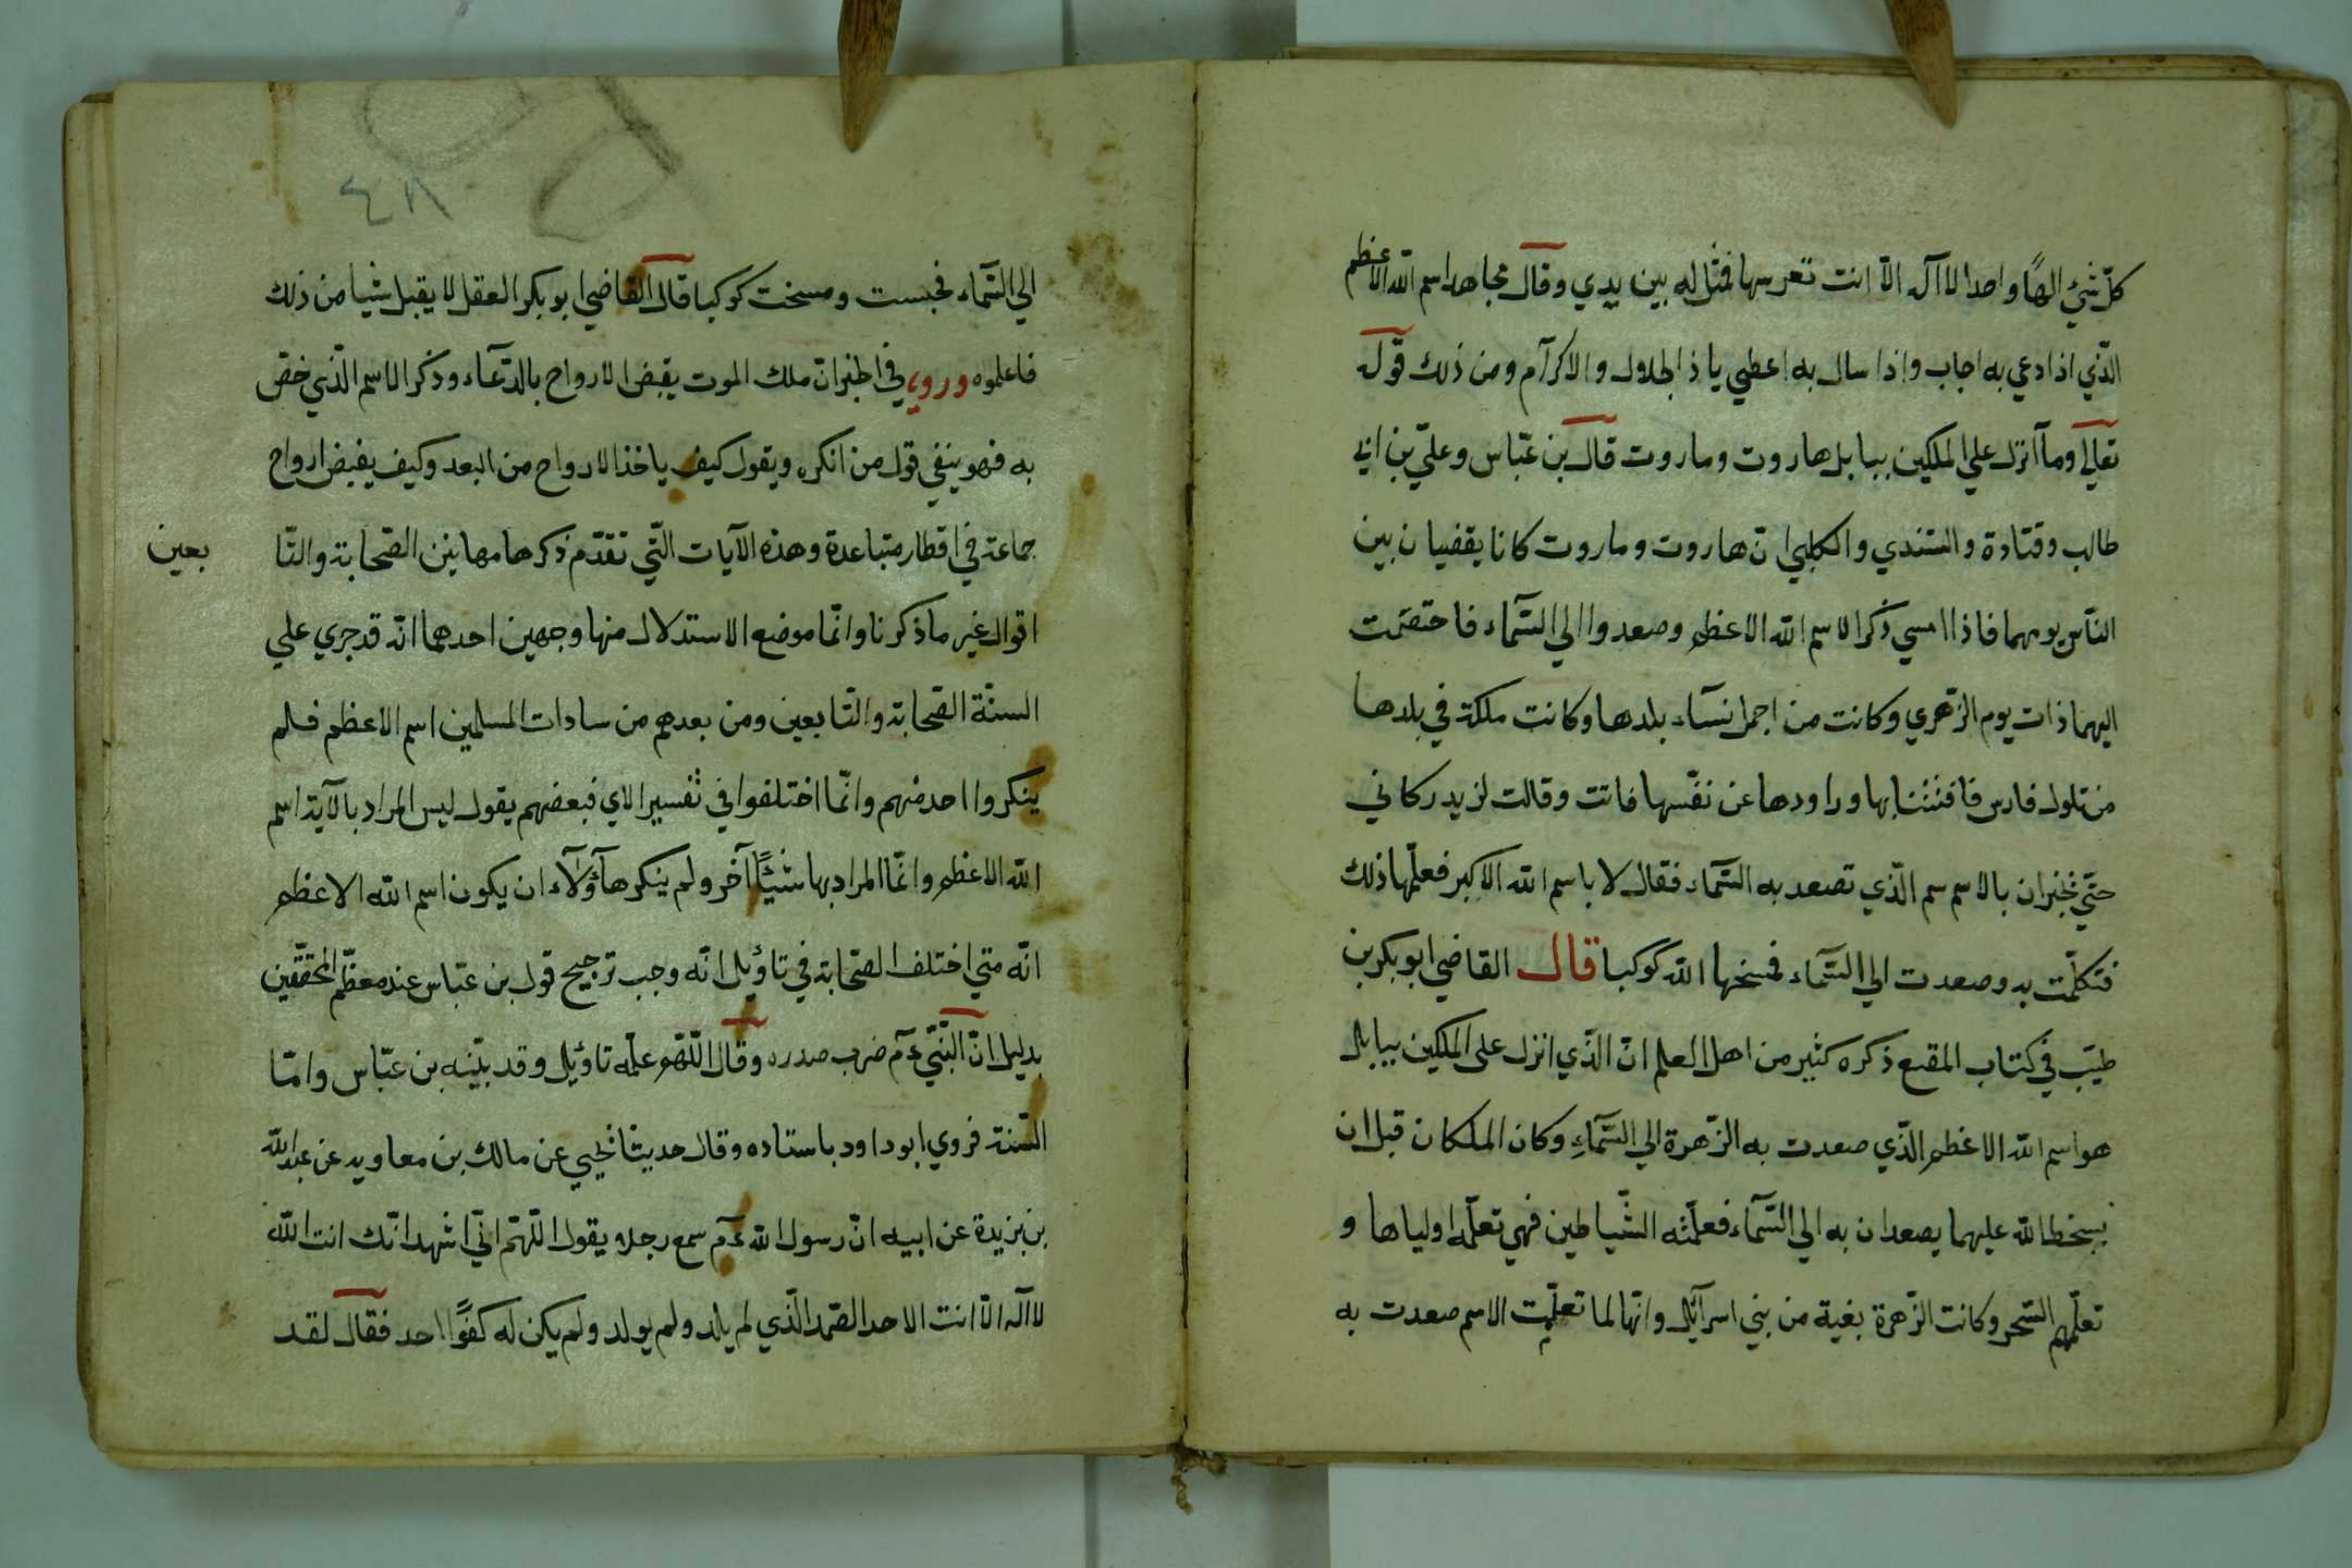 كلّ شيئ الهًا واحدا لا آله الاّ انت تعرسها فمثل له بين يدي وقال مجاهد اسم الله الاعظم
الّذي اذا دعي به اجاب واذا سال به اعطي يا ذا الجلال والاكرآم ومن ذلك قوله
تعالي وما آنزل علي الملكين ببابل هاروت وماروت قال بن عبّاس وعليّ بن ابي
طالب وقتادة والسّندي والكلبي انّ هاروت وماروت كانا يقضيان بين
النّاس يومهما فاذا امسي ذكرا لاسم الله الاعظم وصعدوا الي السّمآء فاختصمت
اليهما ذات يوم الزّهري وكانت من اجمل نسآء بلدها وكانت ملكة في بلدها
من تلوك فارس فافتتنا بها وراودها عن نفسها فاتت وقالت لزيدركاني
حتّي تخبران بالاسم سم الّذي تصعد به السّمآء فقال لا باسم الله الاكبر فعلّمها ذلك
فتكلّمت به وصعدت الي السّمآء فمسخها الله كوكبا قال القاضي ابو بكر بن
طيّب في كتاب المقنع ذكره كثير من اهل العلم انّ الّذي انزل على الملكين ببابل
هو اسم الله الاعظم الّذي صعدت به الزّهرة الي السّمآءِ وكان الملكان قبل ان
يسخط الله عليهما يصعدان به الي السّمآء فعلّمته الشّياطين فهي تعلّمه اولياها و
تعلّمهم السّحر وكانت الزّهرة بغية من بني اسرآئل وانّها لما تعلّمت الاسم صعدت به
٤٨
الي السّمآء فحبست ومسخت كوكبا قال القاضي ابو بكر العقل لا يقبل شيا من ذلك
فاعلموه وروي في الخبر انّ ملك الموت يقبض الارواح بالدّعآء وذكر الاسم الّذي خصّ
به فهو ينفي قول من انكره ويقول كيف ياخذ الارواح من البعد وكيف يقبض ارواح
جماعة في اقطار متباعدة وهذه الآيات الّتي تقدّم ذكرها مها بين الصّحابة والتّا بعين
اقوال غير ما ذكرنا وانّما موضع الاستدلال منها وجهين احدهما انّه قد جري علي
السنّة الصّحابة والتّابعين ومن بعدهم من سادات المسلمين اسم الاعظم فلم
ينكروا احد منهم وانّما اختلفوا في تفسير الاي فبعضهم يقول ليس المراد بالآية اسم
الله الاعظم وانّما المراد بها شيئًا آخر ولم ينكر هآؤلآء ان يكون اسم الله الاعظم
انّه متي اختلف الصّحابة في تاؤيل انّه وجب ترجيح قول بن عبّاس عند معظّم المحقّقين
بدليل انّ النّبيّ ءم ضرب صدره وقال اللّهم علّمه تاؤيل وقد بيّنه بن عبّاس وامّا
السّنة فروي ابو داود باستاده وقال حديثا يحيي عن مالك بن معاويه عن عبد الله
بن بزيدة عن ابيه انّ رسول الله ءم سمع رجلا يقول اللّهمّ انّي اشهد انّك انت الله
لا آله الاّ انت الاحد الصّمد الّذي لم يلد ولم يولد ولم يكن له كفوًا احد فقال لقد